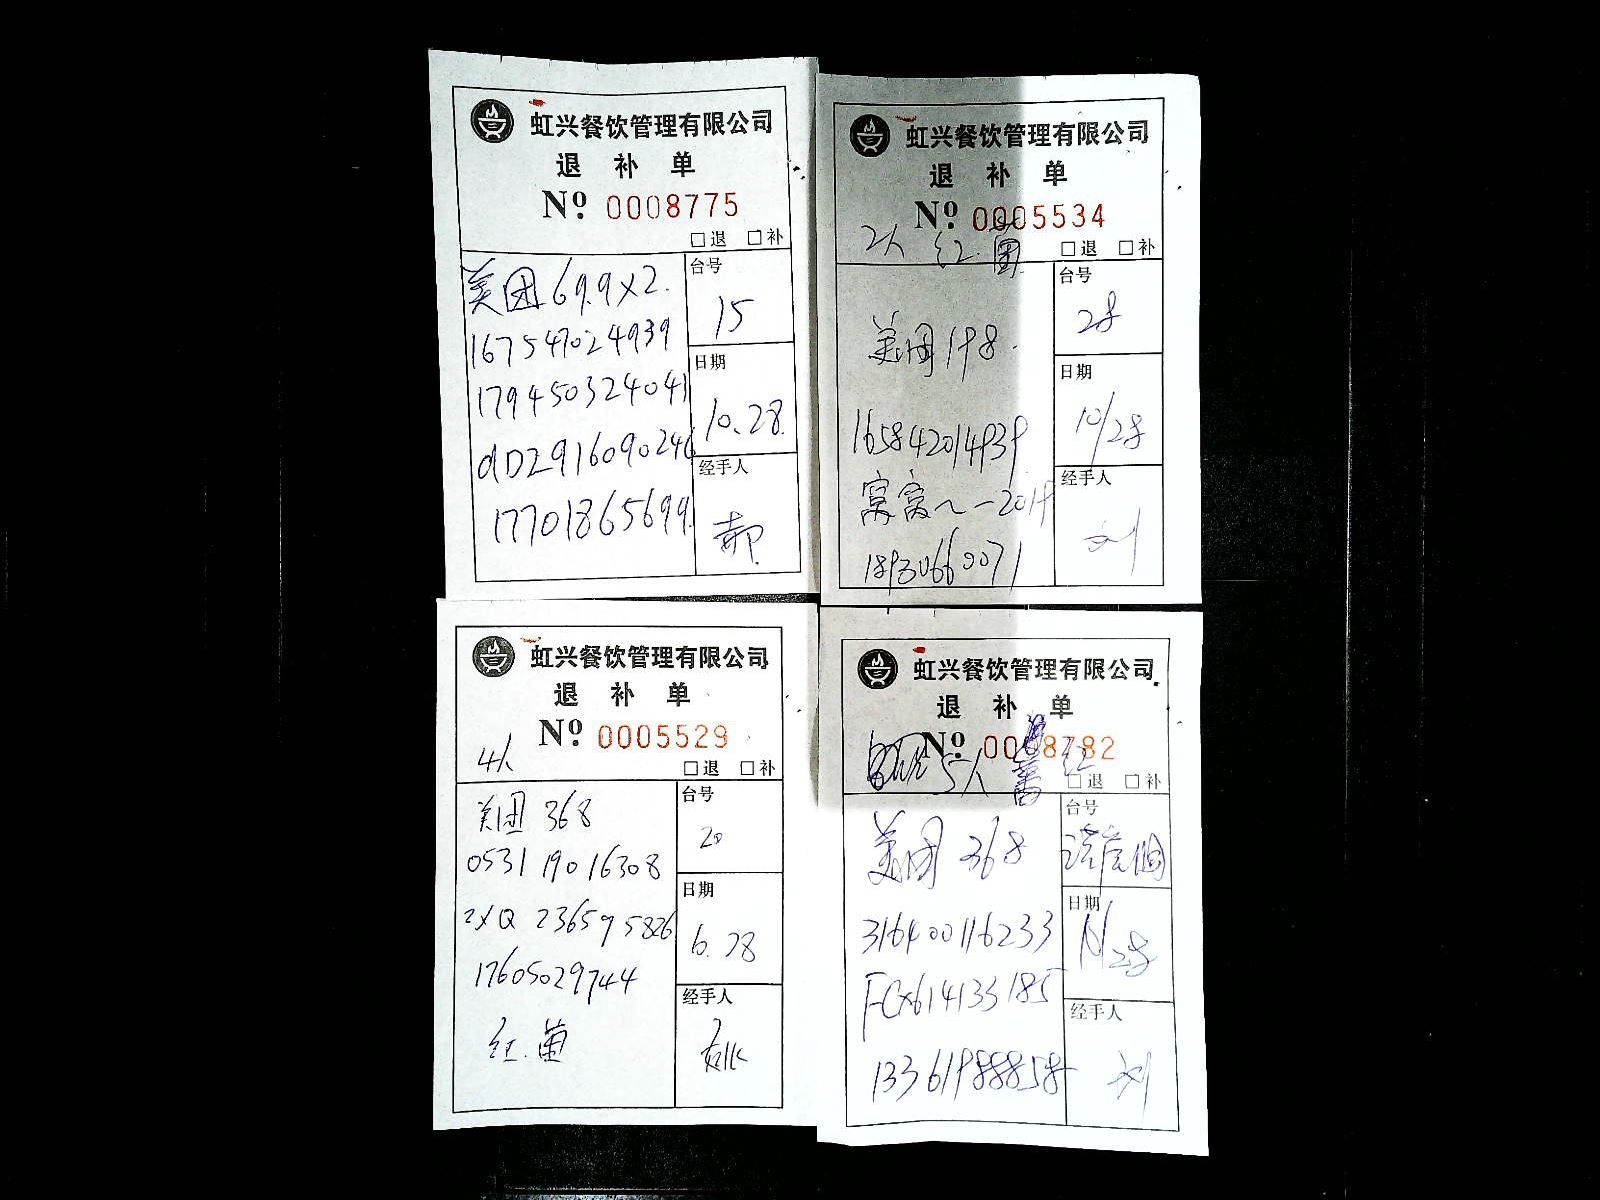 虹兴餐饮管理有限公司
退 补 单
Nº 0008775
□退 □补
美团69.9×2.
167547024939
179450324041
dD2916090246
17701865699
台号
15
日期
10.28.
经手人
郝
虹兴餐饮管理有限公司
退 补 单
Nº 0005534
2人 红.菌
□退 □补
美团198.
165842014939
窝窝~-2019
18930660071
台号
28
日期
10/28
经手人
刘
虹兴餐饮管理有限公司
退 补 单
Nº 0005529
4人
□退 □补
美团 368
0531 190 16308
2XQ 236595826
17605029744
红.菌
台号
20
日期
6.28
经手人
虹兴餐饮管理有限公司
退 补 单
Nº 0008782
5人 红
□退 □补
美团 368
316400116233
FCX614133185
13361988858
台号
日期
28
经手人
刘